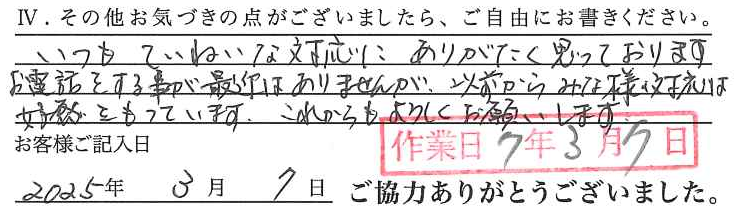 Ⅳ．その他お気づきの点がございましたら、ご自由にお書きください。
いつも ていねいな対応に ありがたく思っております
お電話をする事が最近はありませんが、以前からみな様の対応は
好感をもっています。これからもよろしくお願いします。
お客様ご記入日
作業日 7年3月7日
2025年 3月 7日 ご協力ありがとうございました。